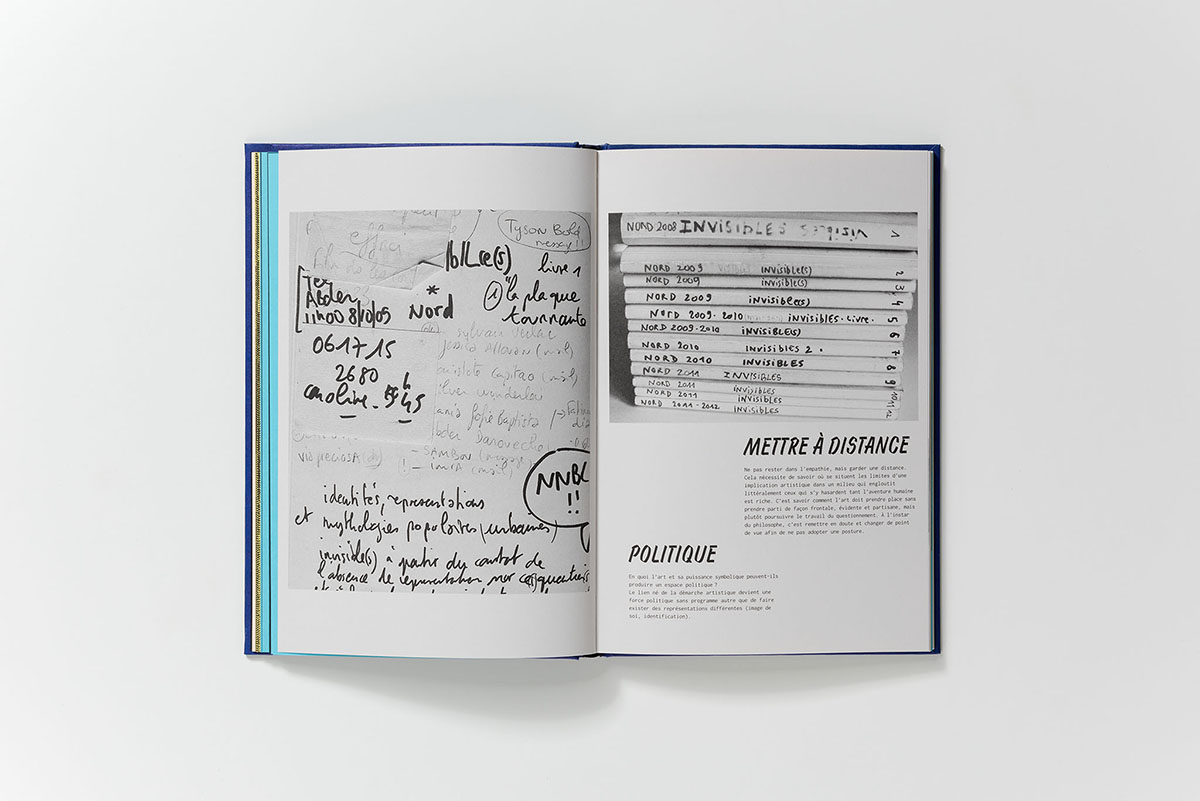 Tyson
messy !!
effroi
ibLe(s)
livre 1
Abder
11h00 8/10/05
*
Nord
① "la plaque
tournante
0617 15
2680
caroline. 5945
sylvain
(mail)
Capitao (mail)
Sofie Baptista
Abder Danoveche
- SAMBOU
VIA PRECIOSA
NNBC
!!
identités, representations
et mythologies populaires (urbaines)
invisible(s) à partir du constat de
l'absence de representation sur ces quartiers
NORD 2008 INVISIBLES 1
NORD 2009 INVISIBLE(S) 2
NORD 2009 INVISIBLE(S) 3
NORD 2009 INVISIBLE(S) 4
NORD 2009-2010 INVISIBLES-LIVRE. 5
NORD 2009-2010 INVISIBLE(S) 6
NORD 2010 INVISIBLES 2 . 7
NORD 2010 INVISIBLES 8
NORD 2011 INVISIBLES 9
NORD 2011 INVISIBLES 10
NORD 2011 INVISIBLES 11
NORD 2011-2012 INVISIBLES 12
METTRE À DISTANCE
Ne pas rester dans l'empathie, mais garder une distance.
Cela nécessite de savoir où se situent les limites d'une
implication artistique dans un milieu qui engloutit
littéralement ceux qui s'y hasardent tant l'aventure humaine
est riche. C'est savoir comment l'art doit prendre place sans
prendre parti de façon frontale, évidente et partisane, mais
plutôt poursuivre le travail du questionnement. À l'instar
du philosophe, c'est remettre en doute et changer de point
de vue afin de ne pas adopter une posture.
POLITIQUE
En quoi l'art et sa puissance symbolique peuvent-ils
produire un espace politique ?
Le lien né de la démarche artistique devient une
force politique sans programme autre que de faire
exister des représentations différentes (image de
soi, identification).